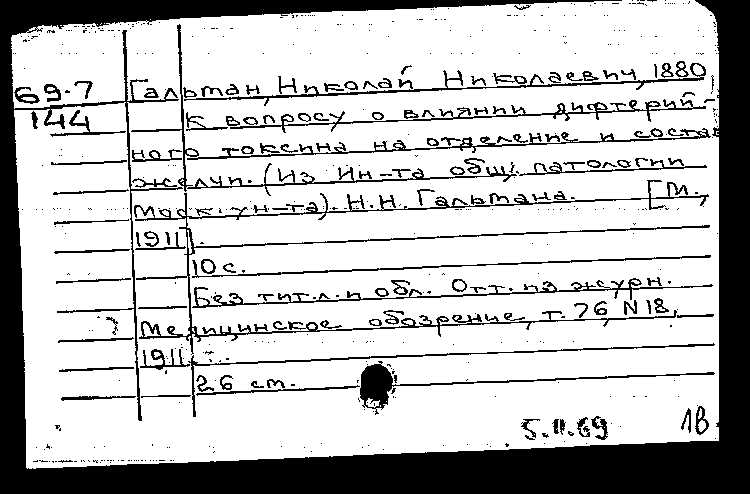 69-7
144
Гальман, Николай Николаевич, 1880
К вопросу о влиянии дифтерий-
ного токсина на отделение и состав
желчи. (Из Ин-та общ. патологии
Моск. ун-та). Н.Н. Гальмана. [М.,
1911].
10 с.
Без тит. л. и обл. Отт. из журн.
Медицинское обозрение, т. 76, N 18,
1911 г.
26 см.
5.II.69 1В